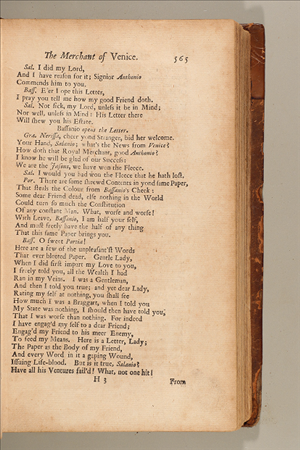 The Merchant of Venice. 565
Sal. I did my Lord,
And I have reason for it; Signior Anthonio
Commends him to you.
Bass. E'er I ope this Letter,
I pray you tell me how my good Friend doth.
Sal. Not sick, my Lord, unless it be in Mind;
Nor well, unless in Mind: His Letter there
Will shew you his Estate.
Bassanio opens the Letter.
Gra. Nerissa, cheer yond Stranger, bid her welcome.
Your Hand, Salanio; what's the News from Venice?
How doth that Royal Merchant, good Anthonio?
I know he will be glad of our Success;
We are the Jasons, we have won the Fleece.
Sal. I would you had won the Fleece that he hath lost.
Por. There are some shrewd Contents in yond same Paper,
That steals the Colour from Bassanio's Cheek:
Some dear Friend dead, else nothing in the World
Could turn so much the Constitution
Of any constant Man. What, worse and worse!
With Leave, Bassanio, I am half your self,
And must freely have the half of any thing
That this same Paper brings you.
Bass. O sweet Portia!
Here are a few of the unpleasant'st Words
That ever blotted Paper. Gentle Lady,
When I did first impart my Love to you,
I freely told you, all the Wealth I had
Ran in my Veins. I was a Gentleman,
And then I told you true; and yet dear Lady,
Rating my self at nothing, you shall see
How much I was a Braggart, when I told you
My State was nothing, I should then have told you,
That I was worse than nothing. For indeed
I have engag'd my self to a dear Friend;
Engag'd my Friend to his meer Enemy,
To feed my Means. Here is a Letter, Lady;
The Paper as the Body of my Friend,
And every Word in it a gaping Wound,
Issuing Life-blood. But is it true, Salanio?
Have all his Ventures fail'd? What, not one hit?
H 3 From